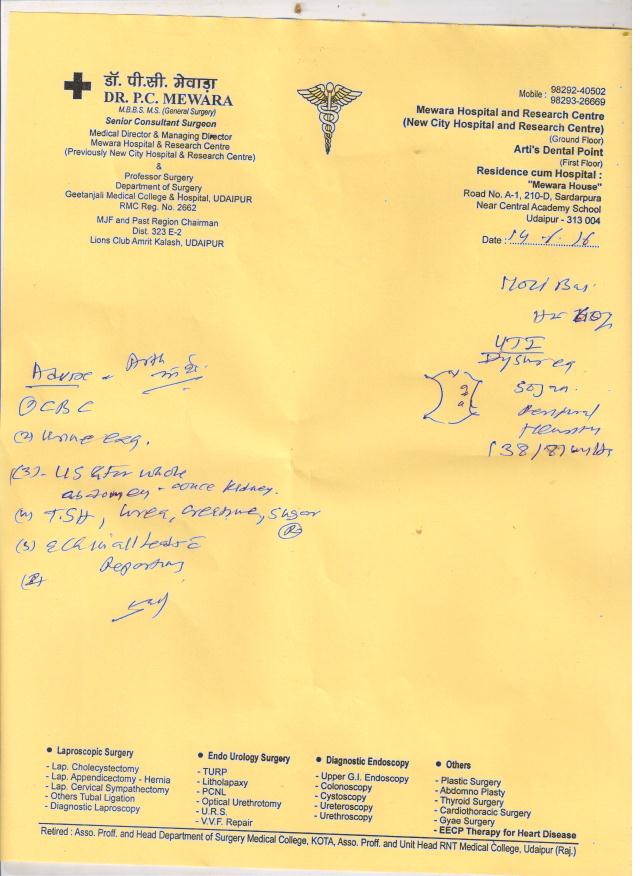 डॉ. पी.सी. मेवाड़ा
DR. P.C. MEWARA
M.B.B.S. M.S. (General Surgery)
Senior Consultant Surgeon
Medical Director & Managing Director
Mewara Hospital & Research Centre
(Previously New City Hospital & Research Centre)
&
Professor Surgery
Department of Surgery
Geetanjali Medical College & Hospital, UDAIPUR
RMC Reg. No. 2662
MJF and Past Region Chairman
Dist. 323 E-2
Lions Club Amrit Kalash, UDAIPUR
Mobile : 98292-40502
98293-26669
Mewara Hospital and Research Centre
(New City Hospital and Research Centre)
(Ground Floor)
Arti's Dental Point
(First Floor)
Residence cum Hospital :
"Mewara House"
Road No. A-1, 210-D, Sardarpura
Near Central Academy School
Udaipur - 313 004
Date :
UTI
Advise
(1) CBC
(2) Urine
(3) - USG for whole
abdomen - Kidney.
(4) TSH, Urea, Creatinine, Sugar
(R)
(5) all leads
Reporting
• Laproscopic Surgery
- Lap. Cholecystectomy
- Lap. Appendicectomy - Hernia
- Lap. Cervical Sympathectomy
- Others Tubal Ligation
- Diagnostic Laproscopy
• Endo Urology Surgery
- TURP
- Litholapaxy
- PCNL
- Optical Urethrotomy
- U.R.S.
- V.V.F. Repair
• Diagnostic Endoscopy
- Upper G.I. Endoscopy
- Colonoscopy
- Cystoscopy
- Ureteroscopy
- Urethroscopy
• Others
- Plastic Surgery
- Abdomno Plasty
- Thyroid Surgery
- Cardiothoracic Surgery
- Gyae Surgery
- EECP Therapy for Heart Disease
Retired : Asso. Proff. and Head Department of Surgery Medical College, KOTA, Asso. Proff. and Unit Head RNT Medical College, Udaipur (Raj.)